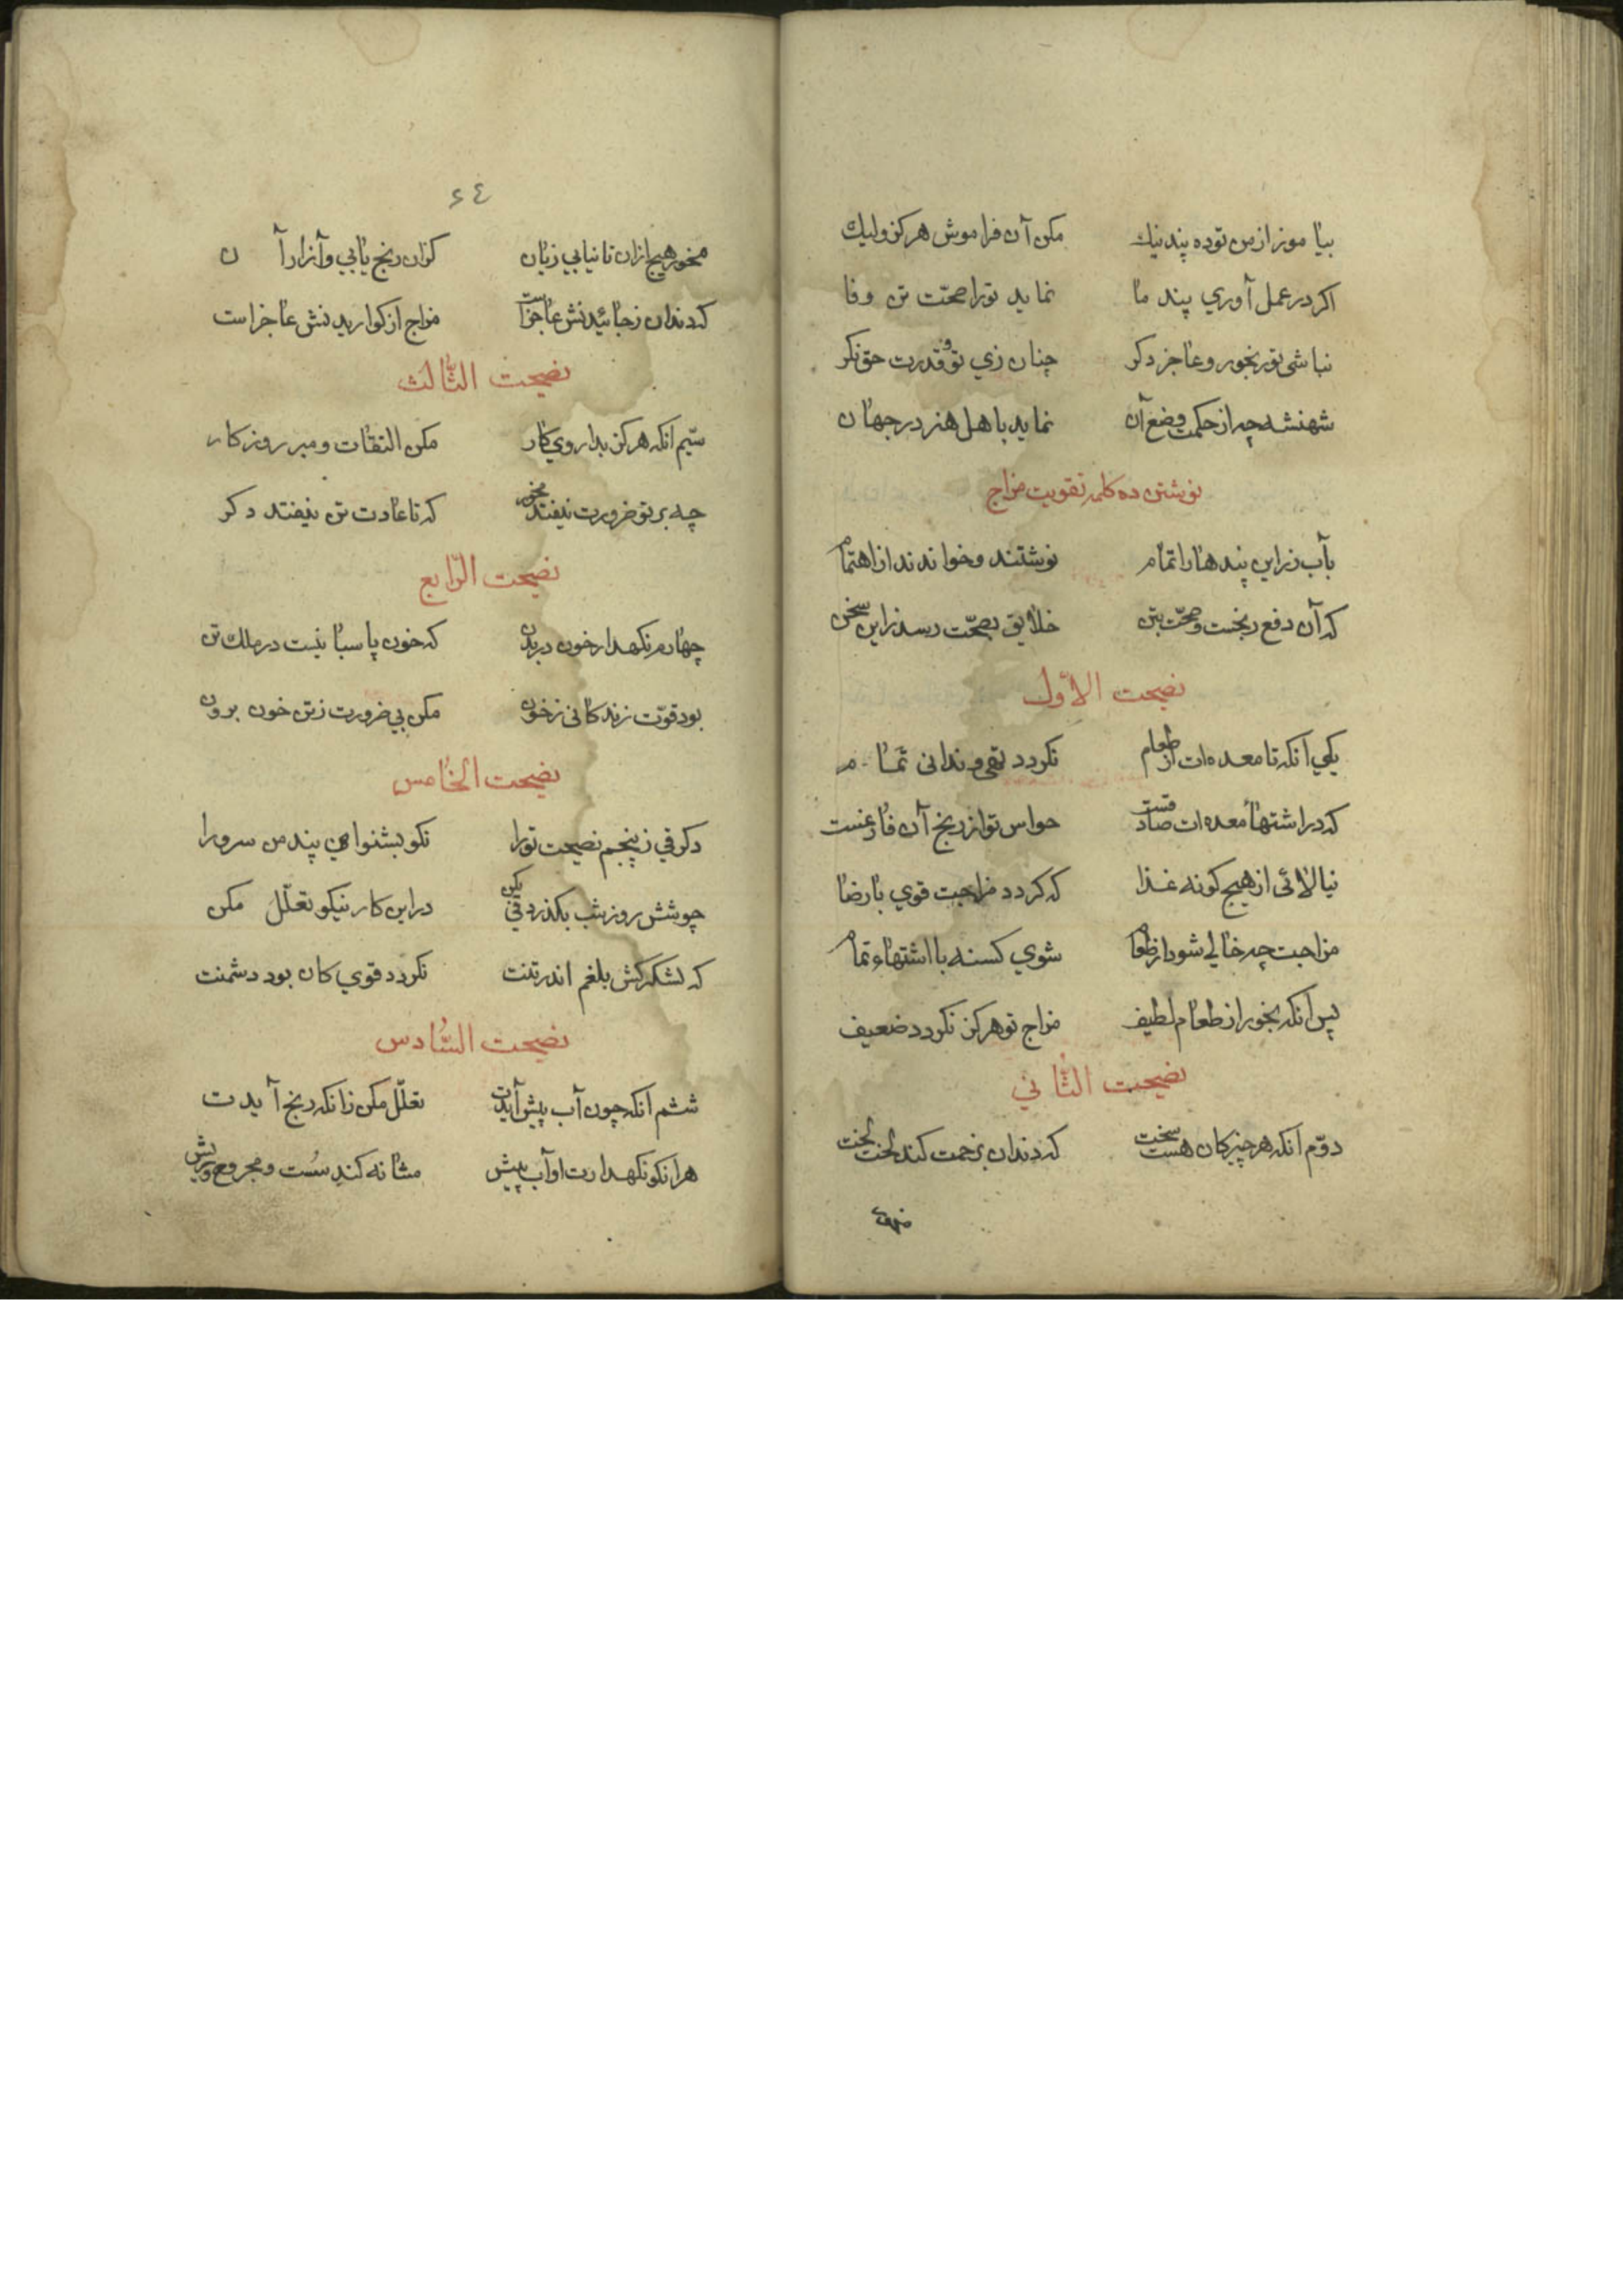 بیا موز از من تو ده پند نیك مكن آن فراموش هركز وليك
اكر در عمل آوري پند ما نمايد تورا صحّت تن وفا
نباشى تو رنجور و عاجز دكر چنان زي تو و قدرت حق نكر
شهنشه چه از حكمت وضع آن نمايد باهل هنر در جهان
نوشتن ده كلمه تقويت مزاج
بآب زر اين پندها را تمام نوشتند و خواندند از اهتمام
كه آن دفع رنجست و صحّت بتن خلايق بصحّت رسد زاين سخن
نصيحت الاوّل
يكي آنكه تا معده ات از طعام نكردد تهى و ندانى تمام
كه در اشتها معده ات صادقست حواس تو از رنج آن فارغست
نيالائى از هيچ كونه غذا كه كردد مزاجت قوي بارضا
مزاجت چه خالي شود از طعام شوي كسنه با اشتهاء تمام
پس آنكه بخور از طعام لطيف مزاج تو هركز نكردد ضعيف
نصيحت الثّاني
دوّم آنكه هر چيز كان هست سخت كه دندان بزحمت كند لخت لخت
مخور هيچ ازان تا نيابي زيان كزان رنج يابي و آزار آن
كه دندان زخائيدنش عاجز است مزاج از كواريدنش عاجز است
نصيحت الثّالث
سيّم آنكه هركز بداروي كار مكن التفات و مبر روزكار
چه بر تو ضرورت نيفتد مخور كه تا عادت تن نيفتد دكر
نصيحت الرّابع
چهارم نكهدار خون در بدن كه خون پاسبانيست در ملك تن
بود قوّت زندكانى زخون مكن بي ضرورت زتن خون برون
نصيحت الخامس
دكر قي زپنجم نصيحت تورا نكو بشنو اين پند من سرورا
چو شش روز شب بكذرد قي بكن در اين كار نيكو تعلّل مكن
كه لشكركش بلغم اندر تنت نكردد قوي كان بود دشمنت
نصيحت السّادس
ششم آنكه چون آب پيش آيدت تعلّل مكن زانكه رنج آيدت
هرآنكو نكهدارت او آب پيش مثانه كند سُست و مجروح و ريش